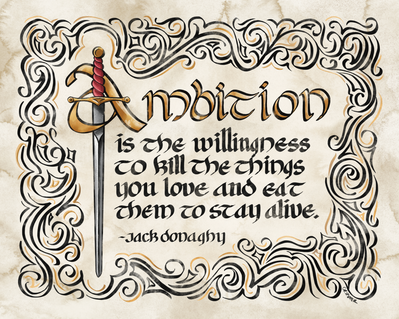 Ambition
is the willingness
to kill the things
you love and eat
them to stay alive.
-Jack Donaghy